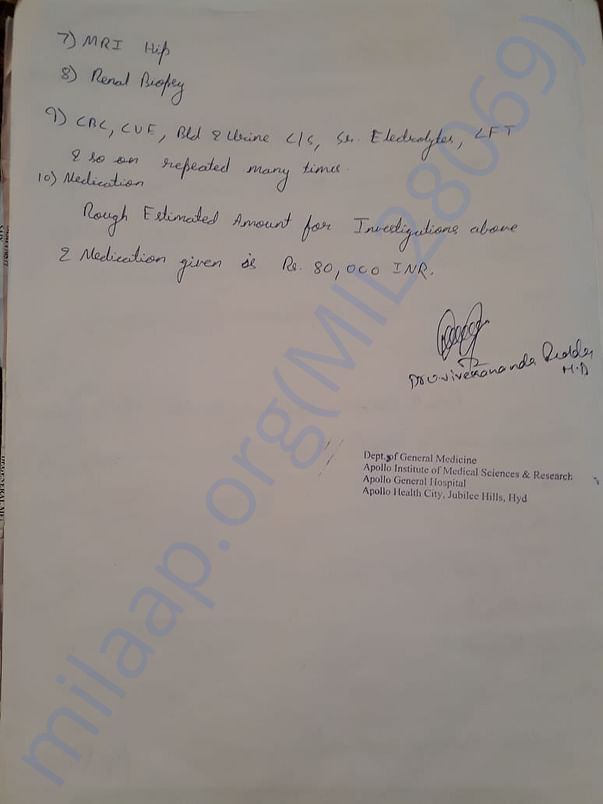 7) MRI Hip
8) Renal Biopsy
9) CBC, CUE, Bld & Urine C/S, Sr. Electrolytes, LFT
& so on repeated many times.
10) Medication
Rough Estimated Amount for Investigations above
& Medication given is Rs. 80,000 INR.
Dr. Vivekananda Reddy
M.D
Dept. of General Medicine
Apollo Institute of Medical Sciences & Research
Apollo General Hospital
Apollo Health City, Jubilee Hills, Hyd
milaap.org(MIL28069)